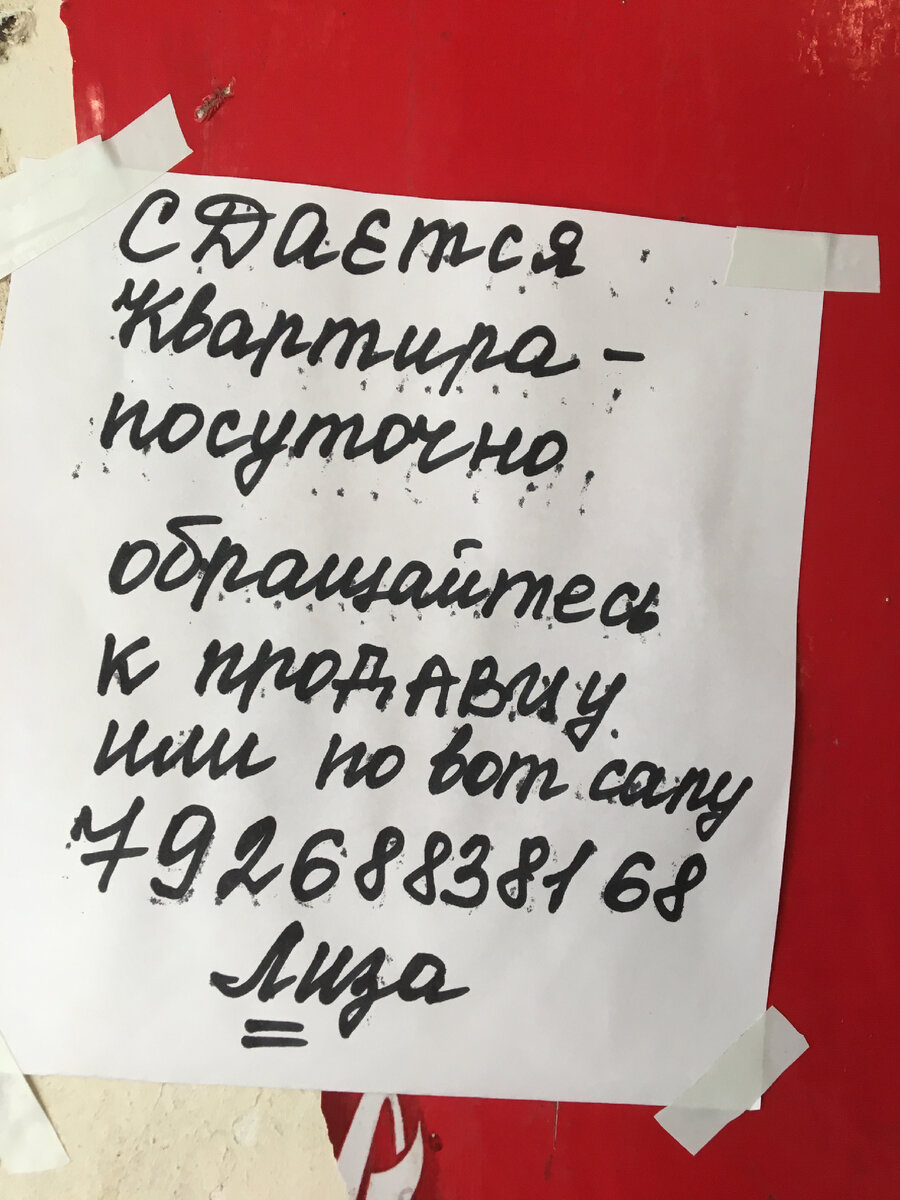 СДАЕТСЯ
Квартира -
посуточно,
обращайтесь
к продавцу
или по вот сапу
79268838168
Лиза